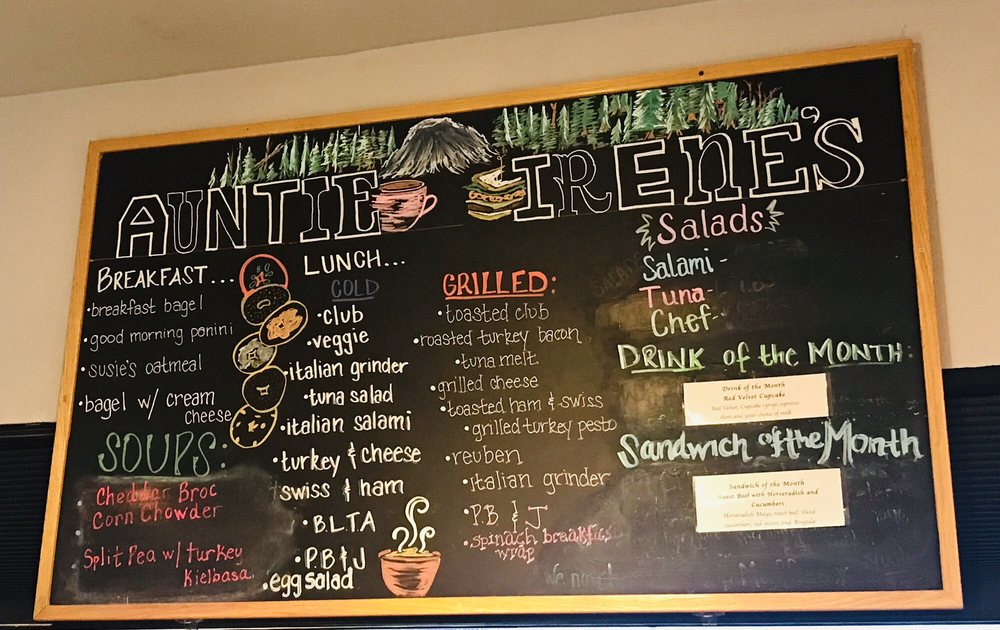 AUNTIE IRENE'S
BREAKFAST...
•breakfast bagel
•good morning panini
•susie's oatmeal
•bagel w/ cream
cheese
SOUPS:
Cheddar Broc
Corn Chowder
Split Pea w/ turkey
Kielbasa
LUNCH...
COLD
•club
•veggie
•italian grinder
•tuna salad
•italian salami
•turkey & cheese
•swiss & ham
•B.L.T.A
•P.B & J
•egg salad
GRILLED:
•toasted club
•roasted turkey bacon
•tuna melt
•grilled cheese
•toasted ham & swiss
•grilled turkey pesto
•reuben
•italian grinder
•P.B & J
•spinach breakfast
wrap
we now
Salads
Salami -
Tuna-
Chef-
DRINK of the MONTH:
Drink of the Month
Red Velvet Cupcake
Red Velvet, Cupcake syrup, espresso
shots and your choice of milk
Sandwich of the Month
Sandwich of the Month
Roast Beef with Horseradish and
Cucumbers
Horseradish Mayo, roast beef, sliced
cucumbers, red onions and Arugula